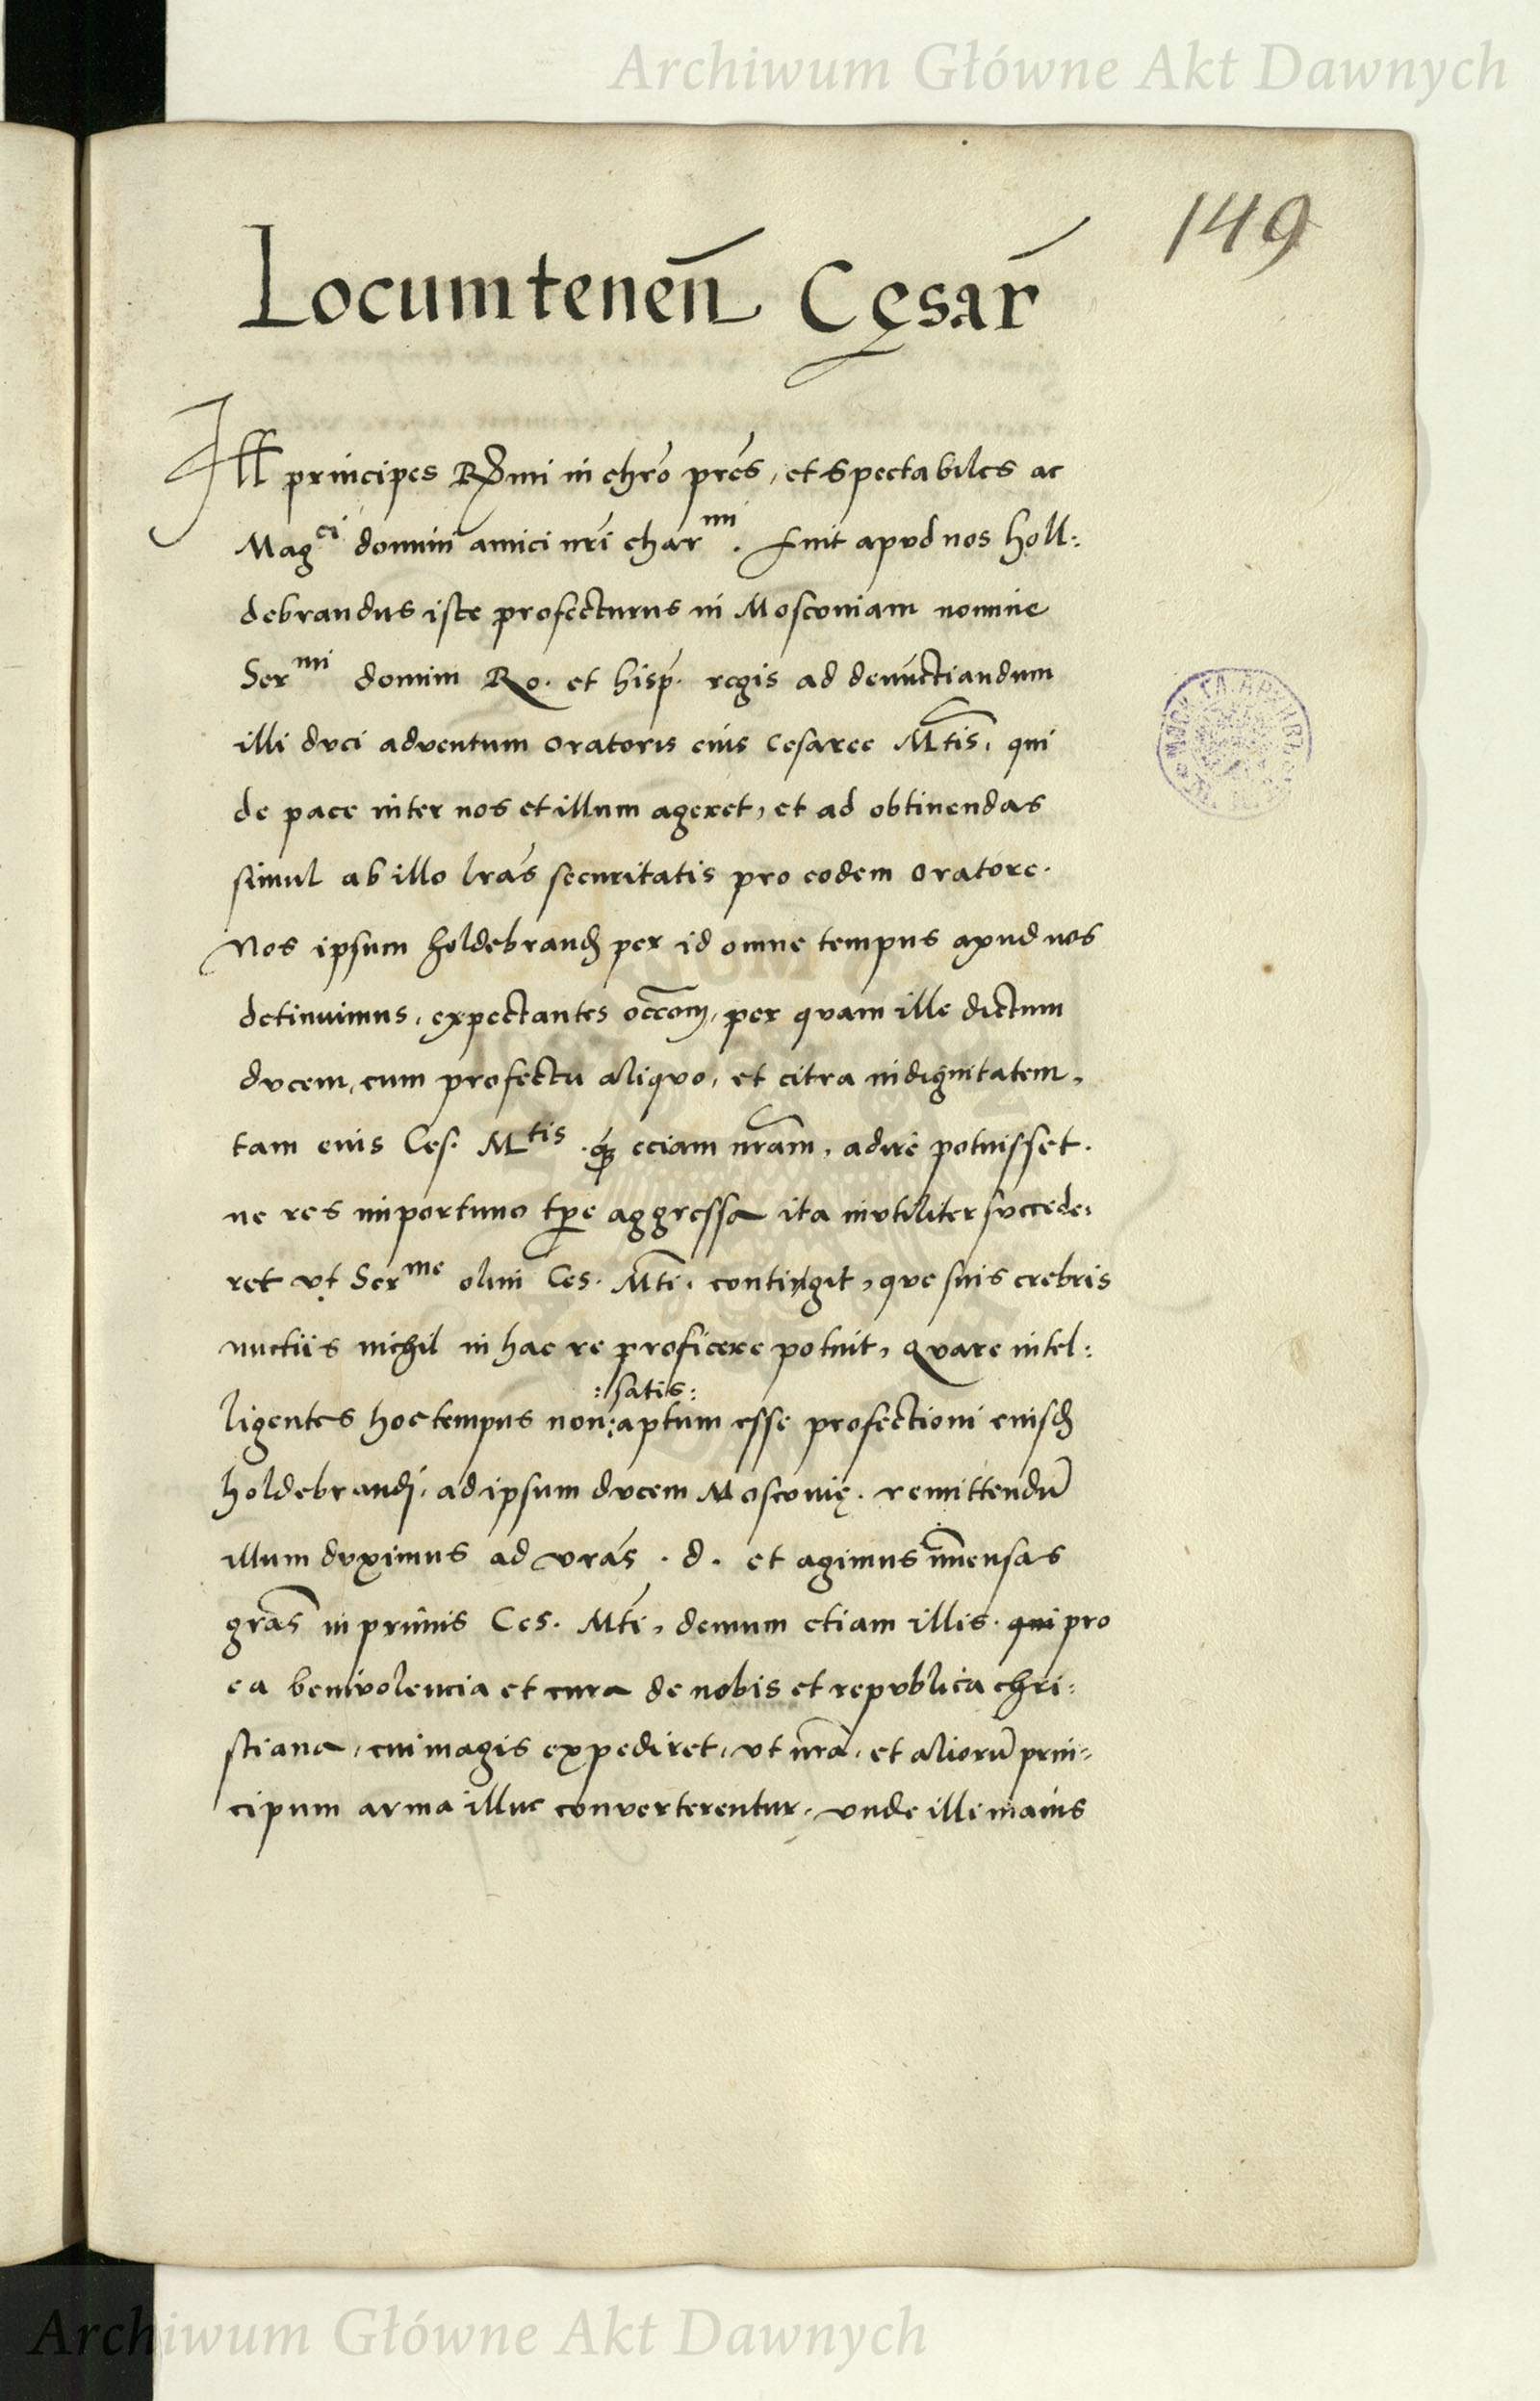 Archiwum Główne Akt Dawnych
149
Locumtenen̄ Cęsar̄
Ill principes Rdmi in chrō prēs, et Spectabiles ac
Magci domini amici nrī charmi. Fuit apvd nos Holl:
debrandus iste profecturus in Mosconiam nomine
Sermi domini Ro. et hisp. regis ad denūctiandum
illi dvci adventum oratoris eius Cesaree Mtis, qui
de pace inter nos et illum ageret, et ad obtinendas
simul ab illo lrās securitatis pro eodem oratore.
Nos ipsum holdebrand per id omne tempus apud nos
detinuimus, expectantes occōm, per qvam ille dictum
dvcem, cum profectu aliqvo, et citra indignitatem,
tam euis Ces. Mtis. qz eciam nrām, adire potuisset.
ne res importuno tpe aggressa ita invtiliter svccede:
ret vt Serme olim Ces. Mti. contingit, qve suis crebris
nuctiis nichil in hac re proficere potuit, qvare intel:
:satis:
ligentes hoc tempus non: aptum esse profectioni euisd
holdebrandi, ad ipsum dvcem Mosconię. remittendū
illum dvximus ad vrās. d. et agimus īmensas
grās in primis Ces. Mti, demum etiam illis. qui pro
ea benivolencia et cura de nobis et repvblica chri:
stiana, cui magis expediret, vt nrā, et aliorū prin:
cipum arma illuc converterentur, vnde illi maius
Archiwum Główne Akt Dawnych